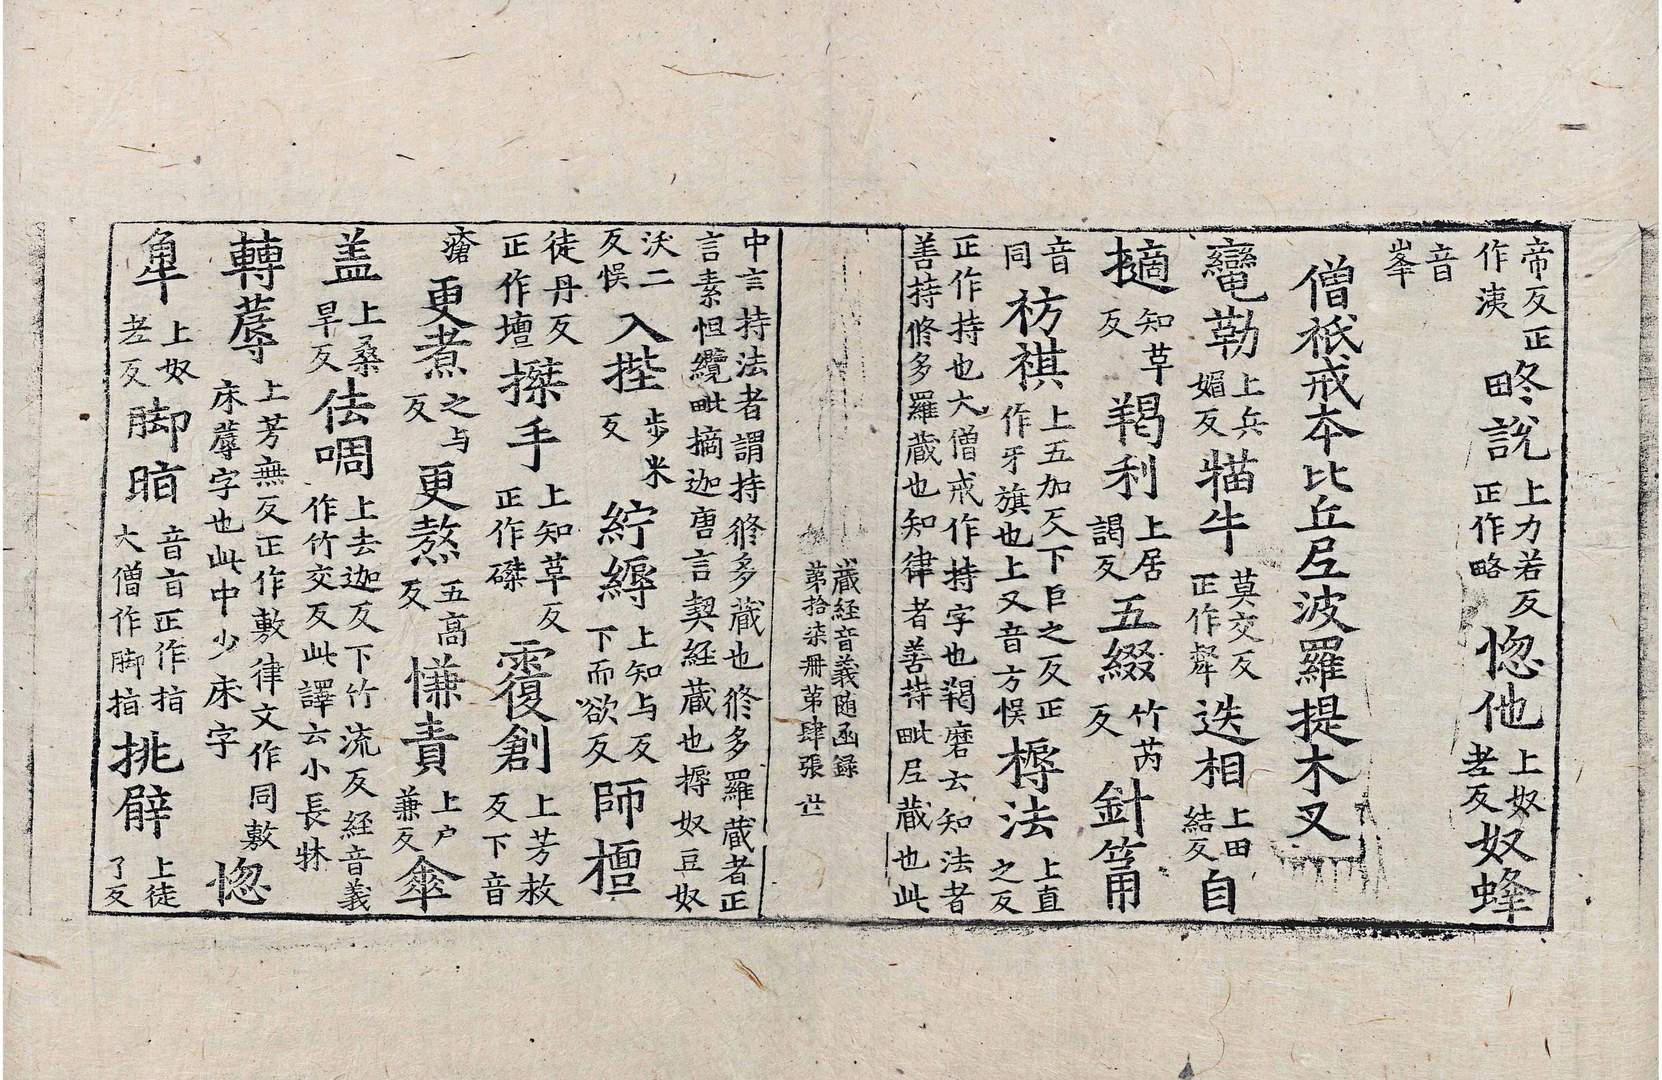 帝反正作洟略說上力若反正作略惚他上奴老反奴蜂
音峯
僧祇戒本比丘尼波羅提木叉
勒上兵媚反猫牛莫交反正作犛迭相上田結反自
擿知草反羯利上居謁反五綴竹芮反針筩
音同枋祺上五加反下巨之反正作牙旗也上又音方悮槈法上直之反
正作持也大僧戒作持字也羯磨云知法者善持修多羅藏也知律者善持毗尼藏也此
藏経音義随函録
第拾柒冊第肆張 世
中言持法者謂持修多藏也修多羅藏者正言素怛纜毗摘迦唐言契経藏也槈奴豆奴
沃二反悮入步米反紵縟上知与反下而欲反師檀
徒丹反正作壇搩手上知草反正作磔覆創上芳救反下音
瘡更煮之与反更熬五高反慊責上户兼反傘
盖上桑旱反佉啁上去迦反下竹流反経音義作竹交反此譯云小長牀
轉蓐上芳無反正作敷律文作同敷床蓐字也此中少床字惚
上奴老反脚音盲正作指大僧作脚指挑上徒了反